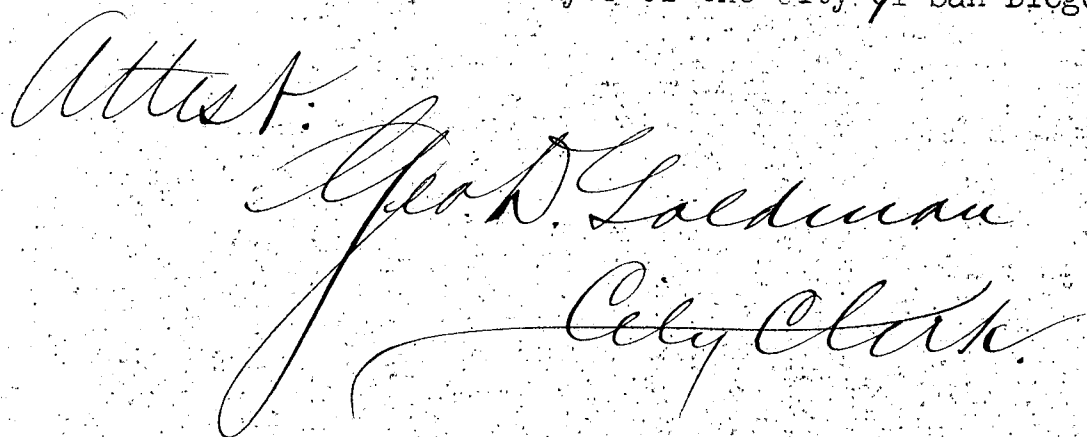 of the City of San Diego
Attest:
Geo. D. Goldman
City Clerk.